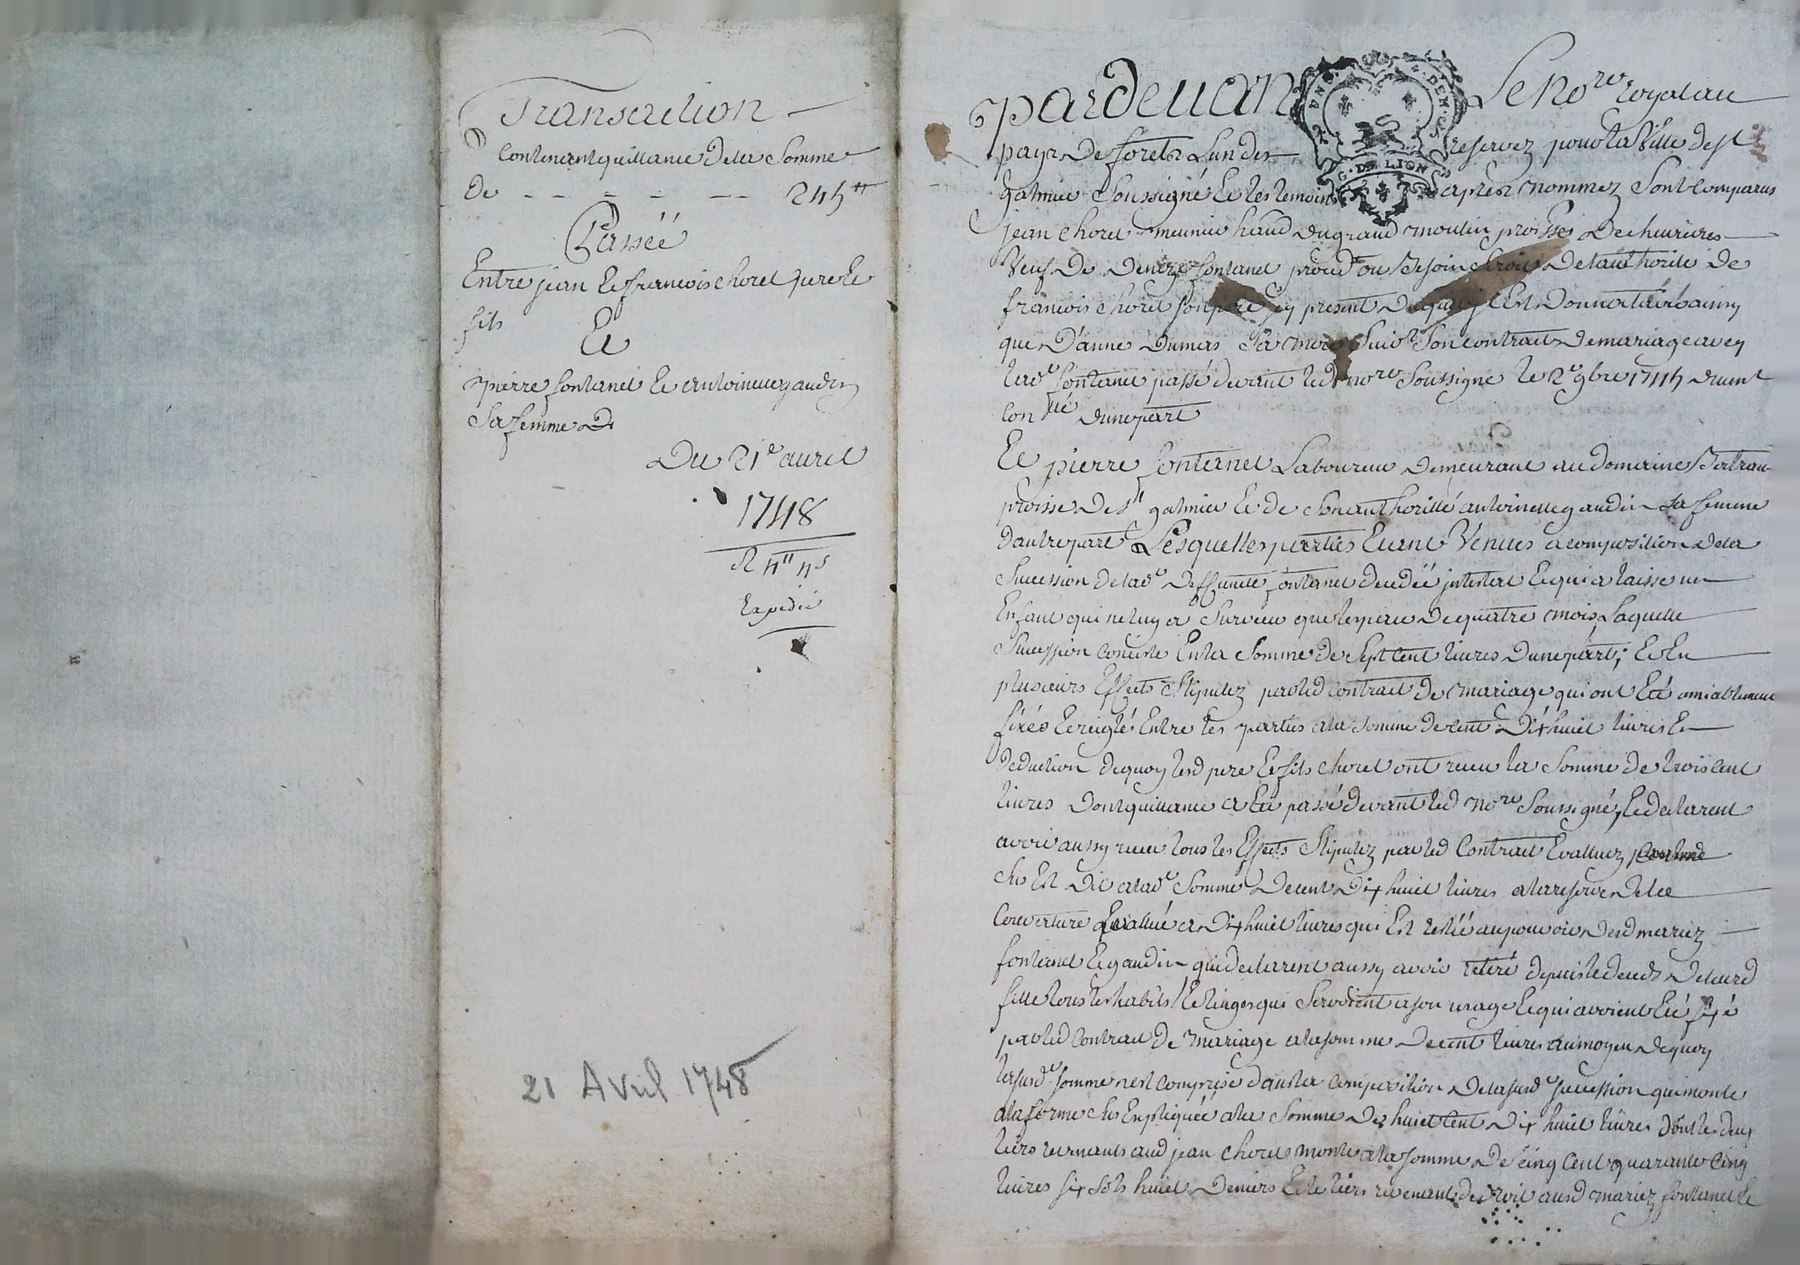 Transaction
Contenant quittance de la Somme
De - - - - - - 245ᵗᵗ
Passéé
Entre jean et francois choret pere et
fils Et
pierre fontanel et antoinette gaudin
Sa femme
Du 21ᵉ avril
1748
R 4ᵗᵗ 4ˢ
Expedié
21 Avril 1748
pardevant Le noʳᵉ royal au
pays de forets Lun des reservez pour la Ville de Sᵗ
galmier Soussigné et les temoins apres nommez Sont comparus
jean choret meunier du grand moulin proisse de cheurieres
Veuf de fontanel procedᵗ ou besoin Seroit de l'authorité de
francois choret son pere jcy present duquel jl Est donnataire
que D'anne Dumas Sa mere Suivᵗ Son contrat de mariage avec
ladᵉ fontanel passé devant ledᵗ noʳᵉ Soussigné le 2ᵉ 9bre 1745 duement
conᵗˡᵉ dune part
Et pierre fontanel Laboureur demeurant au domaine
proisse de Sᵗ galmier et de Son authorité antoinette gaudin Sa femme
dautre part Lesquelles parties Etant Venues a composition de la
Succession de ladᵉ deffunte fontanel decedéé intestat et qui a laissé un
Enfant qui ne luy a Survecu que lespace de quatre mois Laquelle
Succession consiste En la Somme de Sept cent livres dune part, et En
plusieurs Effects Stipulez par led contrat de mariage qui ont Eté amiablement
fixés et reiglé Entre les parties a la Somme de cent dix huit livres En
deduction de quoy lesd pere et fils choret ont receu la Somme de trois cent
livres dont quittance a Eté passé devant led noʳᵉ Soussigné, et declarent
avoir aussy receu tous les Effects Stipulez par led Contrat Evalluez
Est dit a ladᵉ Somme de cent dix huit livres a la reserve de la
Couverture Evallué a dix huit livres qui Est restéé au pouvoir desd mariez
fontanel et gaudin qui declarent aussy avoir retiré depuis le deceds de leurd
fille tous les habits et linges qui Servoient a son usage et qui avoient Eté fixé
par led Contrat de mariage a la somme de cent livres au moyen de quoy
lasusdᵉ somme nest comprise dans la composition de lasusdᵉ Succession qui monte
a la forme cy Expliquéé a la Somme de huit cent dix huit livres dont les deux
tiers revenants aud jean choret monte a la somme de cinq cent quarante cinq
livres six sols huit deniers Et le tiers revenant de droit ausd mariez fontanel et